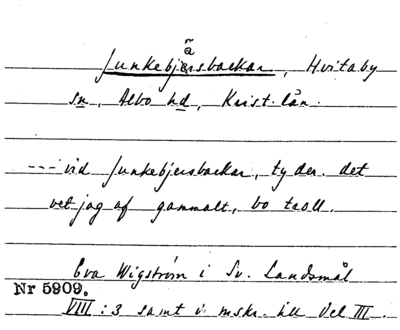 Junkebjersbackar, Hvitaby
sn, Albo hd, Krist. län.
--- vid Junkebjersbackar, ty der. det
vet jag af gammalt, bo troll.
Eva Wigström i Sv. Landsmål
Nr 5909.
VIII:3 samt i mskr. till Del III.